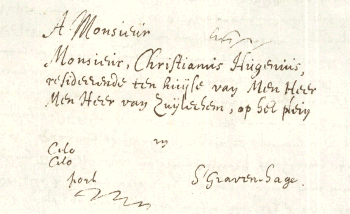 A Monsieur
Monsieur, Christianus Hugenius,
residerende ten huijse van Men Heer
Men Heer van Zuylechem, op het plein
in
Cito
Cito
port
S'Graven-hage.